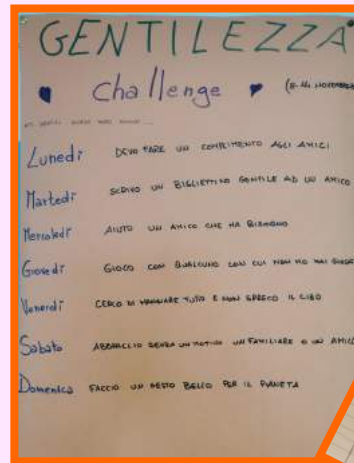 GENTILEZZA
challenge (8-14 NOVEMBRE
Lunedì DEVO FARE UN COMPLIMENTO AGLI AMICI
Martedì SCRIVO UN BIGLIETTINO GENTILE AD UN AMICO
Mercoledì AIUTO UN AMICO CHE HA BISOGNO
Giovedì GIOCO CON QUALCUNO CON CUI NON HO MAI
Venerdì CERCO DI MANGIARE TUTTO E NON SPRECO IL CIBO
Sabato ABBRACCIO SENZA UN MOTIVO UN FAMILIARE O UN AMICO
Domenica FACCIO UN GESTO BELLO PER IL PIANETA